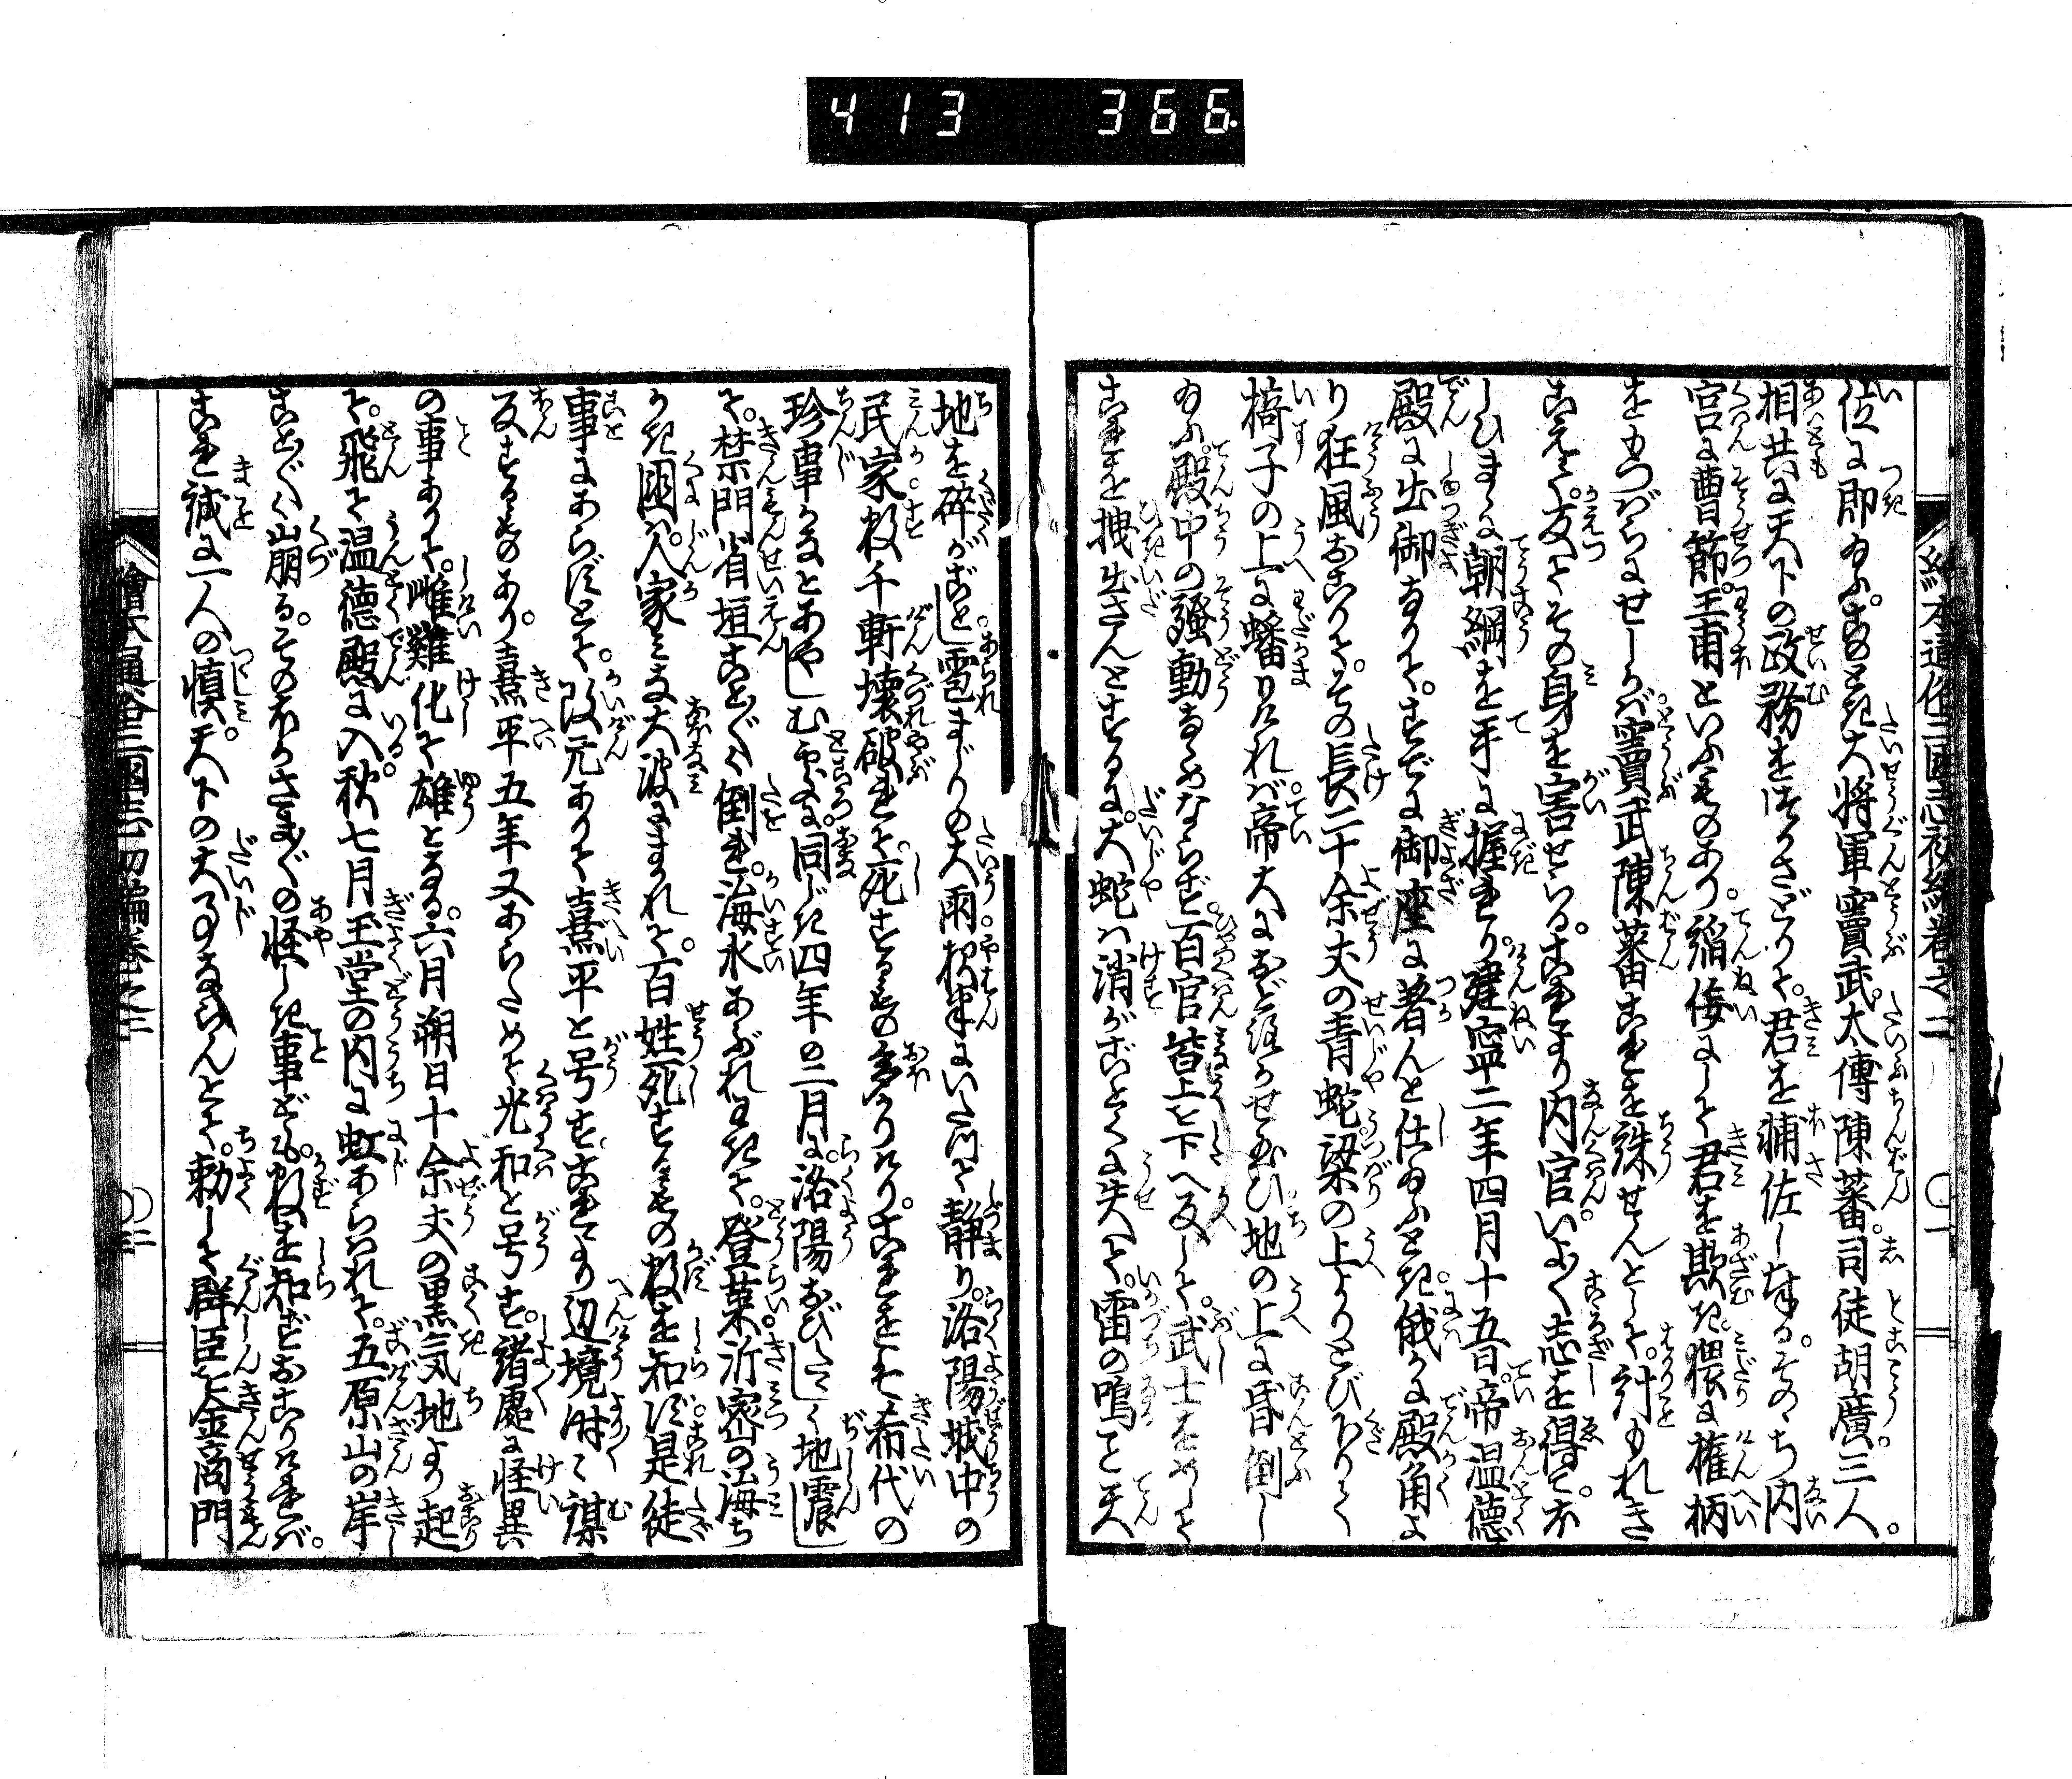 413 366
絵本通俗三國志初編巻之二
位に即給ふ。このとき大将軍竇武。太傅陳蕃。司徒胡廣。三人。
相共に天下の政務をつかさどりて。君を補佐し奉る。そのゝち内
官に曹節。王甫といふものあり。謟侫にして君を欺き。猥に権柄
をもつぱらにせしかば。竇武陳蕃これを誅せんとして。計もれき
こえて。反てその身を害せらる。これより内官いよ〳〵志を得て。ほ
しひまゝに朝綱を手に握れり。建寧二年四月十五日。帝温徳
殿に出御なりて。すでに御座に著んと仕給ふとき。俄かに殿角よ
り狂風おこりて。その長二十余丈の青蛇梁の上よりとびおりて
椅子の上に蟠りければ。帝大におどろかせ玉ひ地の上に昏倒し
給ふ。殿中の騒動なゝめならず。百官皆上を下へ反して。武士をめして
これを拽出さんとするに。大蛇は消がごとくに失て。雷の鳴こと天
地を砕がごとし雹まじりの大雨夜半にいたつて静り。洛陽城中の
民家数千軒壊破れて。死するもの多かりけり。これをこそ希代の
珍事かなとあやしむ処に。同じき四年の二月に。洛陽おびたゝしく地震し
て。禁門省垣こと〴〵く倒れ。海水あふれわきて。登莱沂密の海ち
かき国。人家みな大波にまかれて。百姓死するもの数を知ず是徒
事にあらずとて。改元ありて熹平と号す。これより辺境時々謀
反するものあり。熹平五年又あらためて光和と号す。諸處に怪異
の事ありて。雌雞化して雄となる。六月朔日十余丈の黒気地より起
て。飛んで温徳殿に入。秋七月玉堂の内に虹あらはれて。五原山の岸
こと〴〵く崩る。そのほかさま〴〵の怪しき事ども。数を知ずおこりければ。
これ誠に一人の慎。天下の大事なるらんとて。勅して群臣を金商門
繪本通俗三國志初編巻之二 〇二